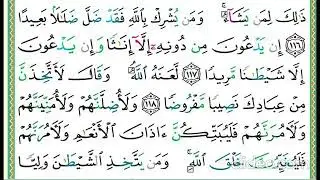 ذَٰلِكَ لِمَن يَشَآءُ ۚ وَمَن يُشْرِكْ بِٱللَّهِ فَقَدْ ضَلَّ ضَلَٰلًۢا بَعِيدًا
﴿١١٦﴾ إِن يَدْعُونَ مِن دُونِهِۦٓ إِلَّآ إِنَٰثًا وَإِن يَدْعُونَ
إِلَّا شَيْطَٰنًا مَّرِيدًا ﴿١١٧﴾ لَّعَنَهُ ٱللَّهُ ۘ وَقَالَ لَأَتَّخِذَنَّ
مِنْ عِبَادِكَ نَصِيبًا مَّفْرُوضًا ﴿١١٨﴾ وَلَأُضِلَّنَّهُمْ وَلَأُمَنِّيَنَّهُمْ
وَلَأٓمُرَنَّهُمْ فَلَيُبَتِّكُنَّ ءَاذَانَ ٱلْأَنْعَٰمِ وَلَأٓمُرَنَّهُمْ
فَلَيُغَيِّرُنَّ خَلْقَ ٱللَّهِ ۚ وَمَن يَتَّخِذِ ٱلشَّيْطَٰنَ وَلِيًّا